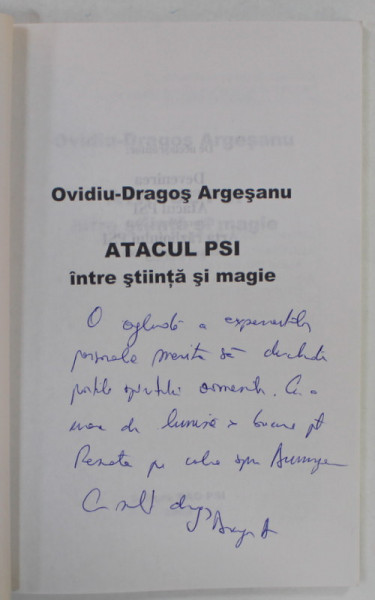 Ovidiu-Dragoş Argeşanu
ATACUL PSI
între ştiinţă şi magie
O oglindă a experienţelor
personale menită să deschidă
porţile spiritului omenesc. Cu o
de lumină pt
Renata pe calea spre
Cu mult drag